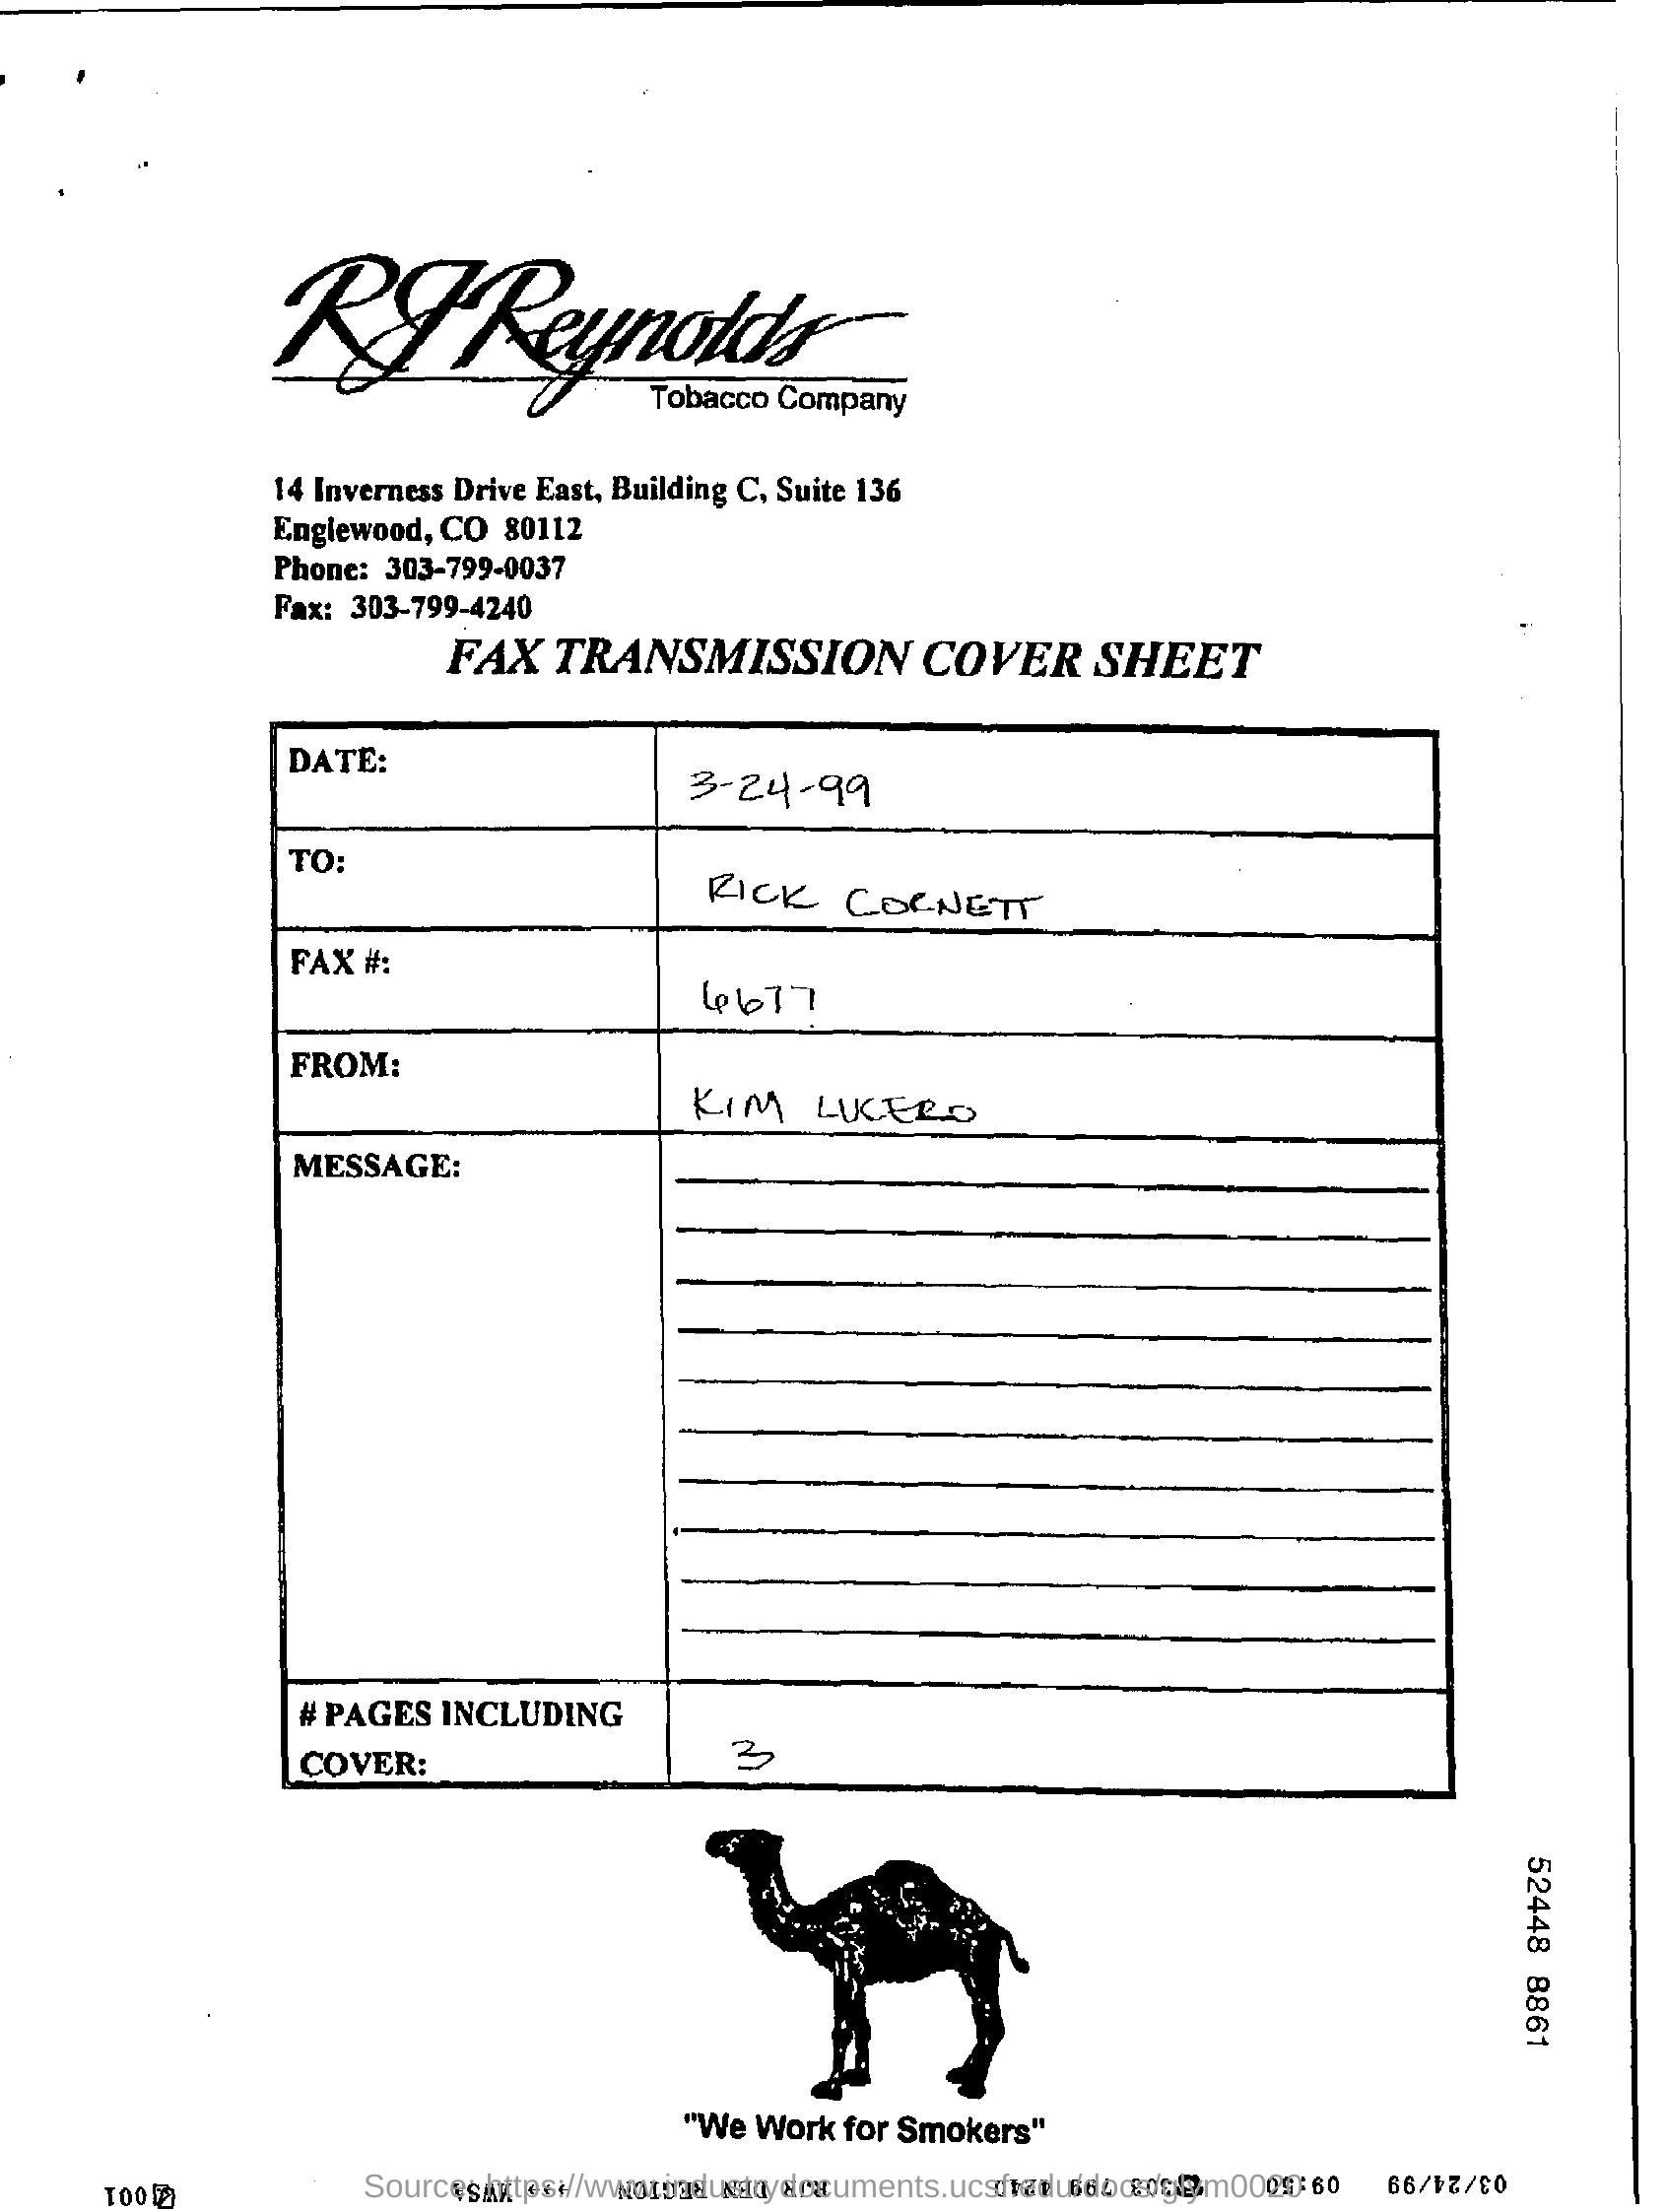 RJReynolds
Tobacco Company
14 Inverness Drive East, Building C, Suite 136
Englewood, CO 80112
Phone: 303-799-0037
Fax: 303-799-4240
FAX TRANSMISSION COVER SHEET
DATE: 3-24-99
TO: RICK CORNETT
FAX #: 6677
FROM: KIM LUCERO
MESSAGE:
# PAGES INCLUDING
COVER: 3
52448 8861
"We Work for Smokers"
03/24/99 09:50 303 799 4240 RJR DEN REGION →→→ YWSA 001
Source: https://www.industrydocuments.ucsf.edu/docs/glym0020